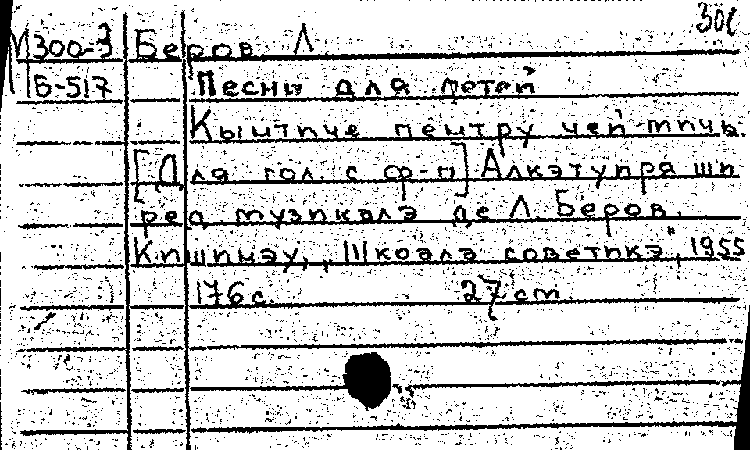 308
М300-3 Беров Л.
Б-517 Песни для детей
Кынтиче пентру чей-мичь.
[Для гол. с ф-п] Алкэтуиря ши
ред. музикалэ де Л. Беров.
Кишинэу, „Школа советикэ", 1955
176 с. 27 cm.